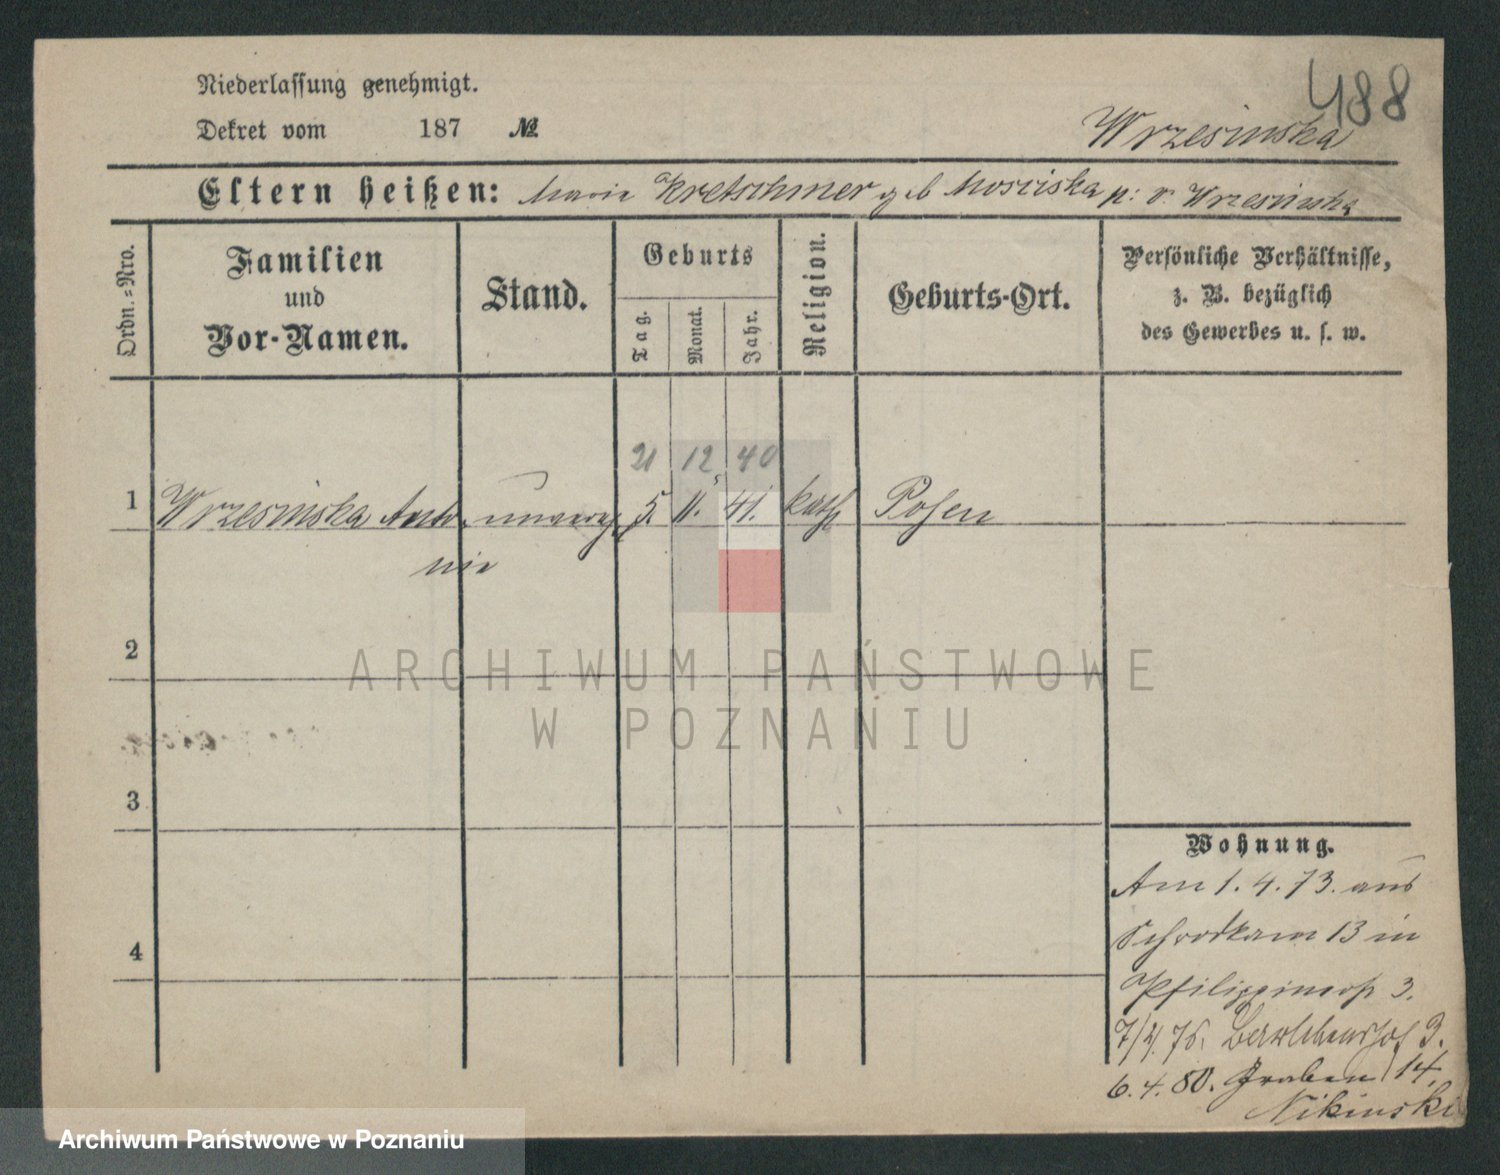 488
Niederlassung genehmigt.
Dekret vom 187 №
Wrzesinska
Eltern heißen: Maria Kretschmer geb Mosciska p: v. Wrzesinska
Ordn.=Nro.
Familien
und
Vor-Namen.
Stand.
Geburts
Tag.
Monat.
Jahr.
Religion.
Geburts-Ort.
Persönliche Verhältnisse,
z. B. bezüglich
des Gewerbes u. s. w.
21 12 40
1 Wrzesinska Anto unvereh 5. 11. 41. kath Posen
nie
2
ARCHIWUM PAŃSTWOWE
W POZNANIU
3
Wohnung.
Am 1. 4. 73. aus
Schrodkam 13 in
4
Philippinerstr 3.
7/4. 76. 3.
6. 4. 80. Graben 14,
Nikinski
Archiwum Państwowe w Poznaniu